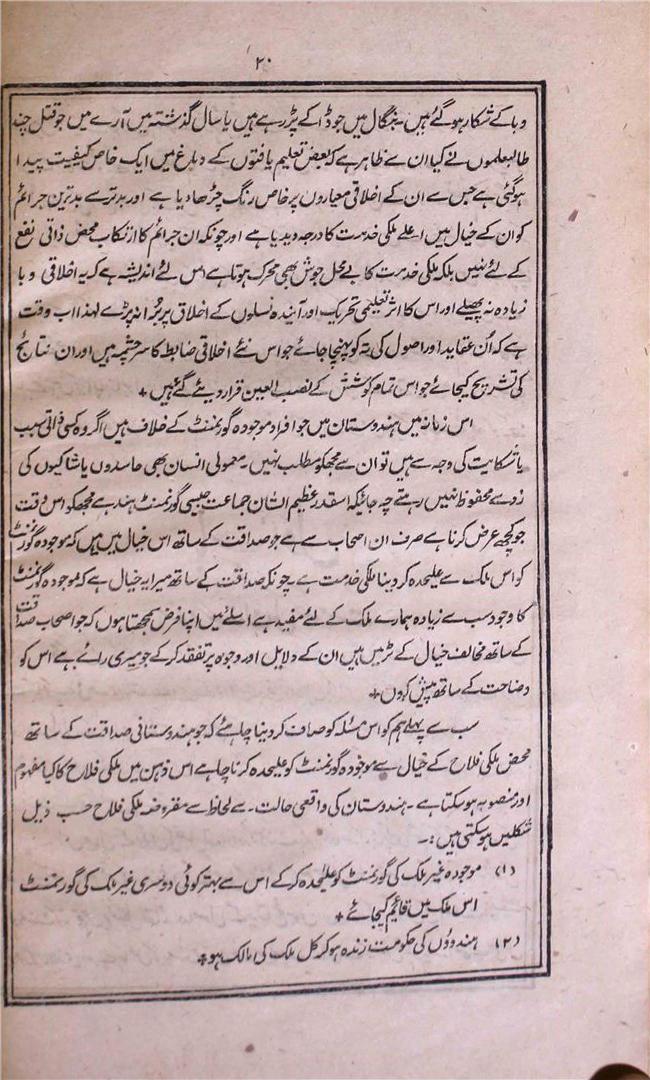 ۲۰
وبا کے شکار ہو گئے ہیں۔ بنگال میں جو ڈاکے پڑ رہے ہیں یا سال گذشتہ میں آرے میں جو قتل چند
طالبعلموں نے کیا ان سے ظاہر ہے کہ بعض تعلیم یافتوں کے دماغ میں ایک خاص کیفیت پیدا
ہو گئی ہے جس سے ان کے اخلاقی معیاروں پر خاص رنگ چڑھا دیا ہے اور بدتر سے بدترین جرائم
کو ان کے خیال میں اعلےٰ ملکی خدمت کا درجہ دیدیا ہے اور چونکہ ان جرائم کا ارتکاب محض ذاتی نفع
کے لئے نہیں بلکہ ملکی خدمت کا بے محل جوش بھی محرک ہوتا ہے اس لئے اندیشہ ہے کہ یہ اخلاقی وبا
زیادہ نہ پھیلے اور اس کا اثر تعلیمی تحریک اور آیندہ نسلوں کے اخلاق پر بُرا نہ پڑے لہذا اب وقت
ہے کہ اُن عقاید اور اصول کی تہ کو پہنچا جائے جو اس نئے اخلاقی ضابطہ کا سرچشمہ ہیں اور ان نتائج
کی تشریح کیجائے جو اس تمام کوشش کے نصب العین قرار دیئے گئے ہیں +
اس زمانہ میں ہندوستان میں جو افراد موجودہ گورنمنٹ کے خلاف ہیں اگر وہ کسی ذاتی سبب
یا شکایت کی وجہ سے ہیں تو ان سے مجھکو مطلب نہیں۔ معمولی انسان بھی حاسدوں یا شاکیوں کی
زد سے محفوظ نہیں رہتے چہ جائیکہ اسقدر عظیم الشان جماعت جیسی گورنمنٹ ہند ہے مجھکو اس وقت
جو کچھ عرض کرنا ہے صرف ان اصحاب سے ہے جو صداقت کے ساتھ اس خیال میں ہیں کہ موجودہ گورنمنٹ
کو اس ملک سے علیحدہ کر دینا ملکی خدمت ہے۔ چونکہ صداقت کے ساتھ میرا یہ خیال ہے کہ موجودہ گورنمنٹ
کا وجود سب سے زیادہ ہمارے ملک کے لئے مفید ہے اسلئے میں اپنا فرض سمجھتا ہوں کہ جو اصحاب صداقت
کے ساتھ مخالف خیال کے ہیں ان کے دلایل اور وجوہ پر تنقید کر کے جو میری رائے ہے اس کو
وضاحت کے ساتھ پیش کروں +
سب سے پہلے ہم کو اس مسئلہ کو صاف کر دینا چاہئے کہ جو ہندوستانی صداقت کے ساتھ
محض ملکی فلاح کے خیال سے موجودہ گورنمنٹ کو علیحدہ کرنا چاہے اس ذہن میں ملکی فلاح کا کیا مفہوم
اور منصوبہ ہو سکتا ہے۔ ہندوستان کی واقعی حالت۔ کے لحاظ سے مفروضہ ملکی فلاح حسب ذیل
شکلیں ہو سکتی ہیں:۔
(۱) موجودہ غیر ملک کی گورنمنٹ کو علیحدہ کر کے اس سے بہتر کوئی دوسری غیر ملک کی گورنمنٹ
اس ملک میں قائیم کیجائے +
(۲) ہندوؤں کی حکومت زندہ ہو کر کل ملک کی مالک ہو +